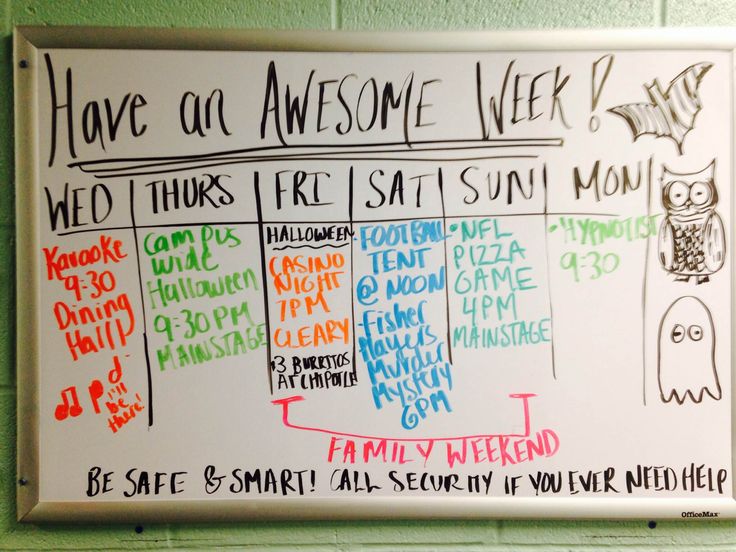 Have an AWESOME WEEK!
WED
THURS
FRI
SAT
SUN
MON
Karaoke
9:30
Dining
Hall
I'll
be
there!
Campus
wide
Halloween
9:30 PM
MAINSTAGE
HALLOWEEN
CASINO
NIGHT
7PM
CLEARY
$3 BURRITOS
AT CHIPOTLE
-FOOTBALL
TENT
@ NOON
-Fisher
Players
Murder
Mystery
6PM
•NFL
PIZZA
GAME
4PM
MAINSTAGE
•HYPNOTIST
9:30
FAMILY WEEKEND
BE SAFE & SMART! CALL SECURITY IF YOU EVER NEED HELP
OfficeMax